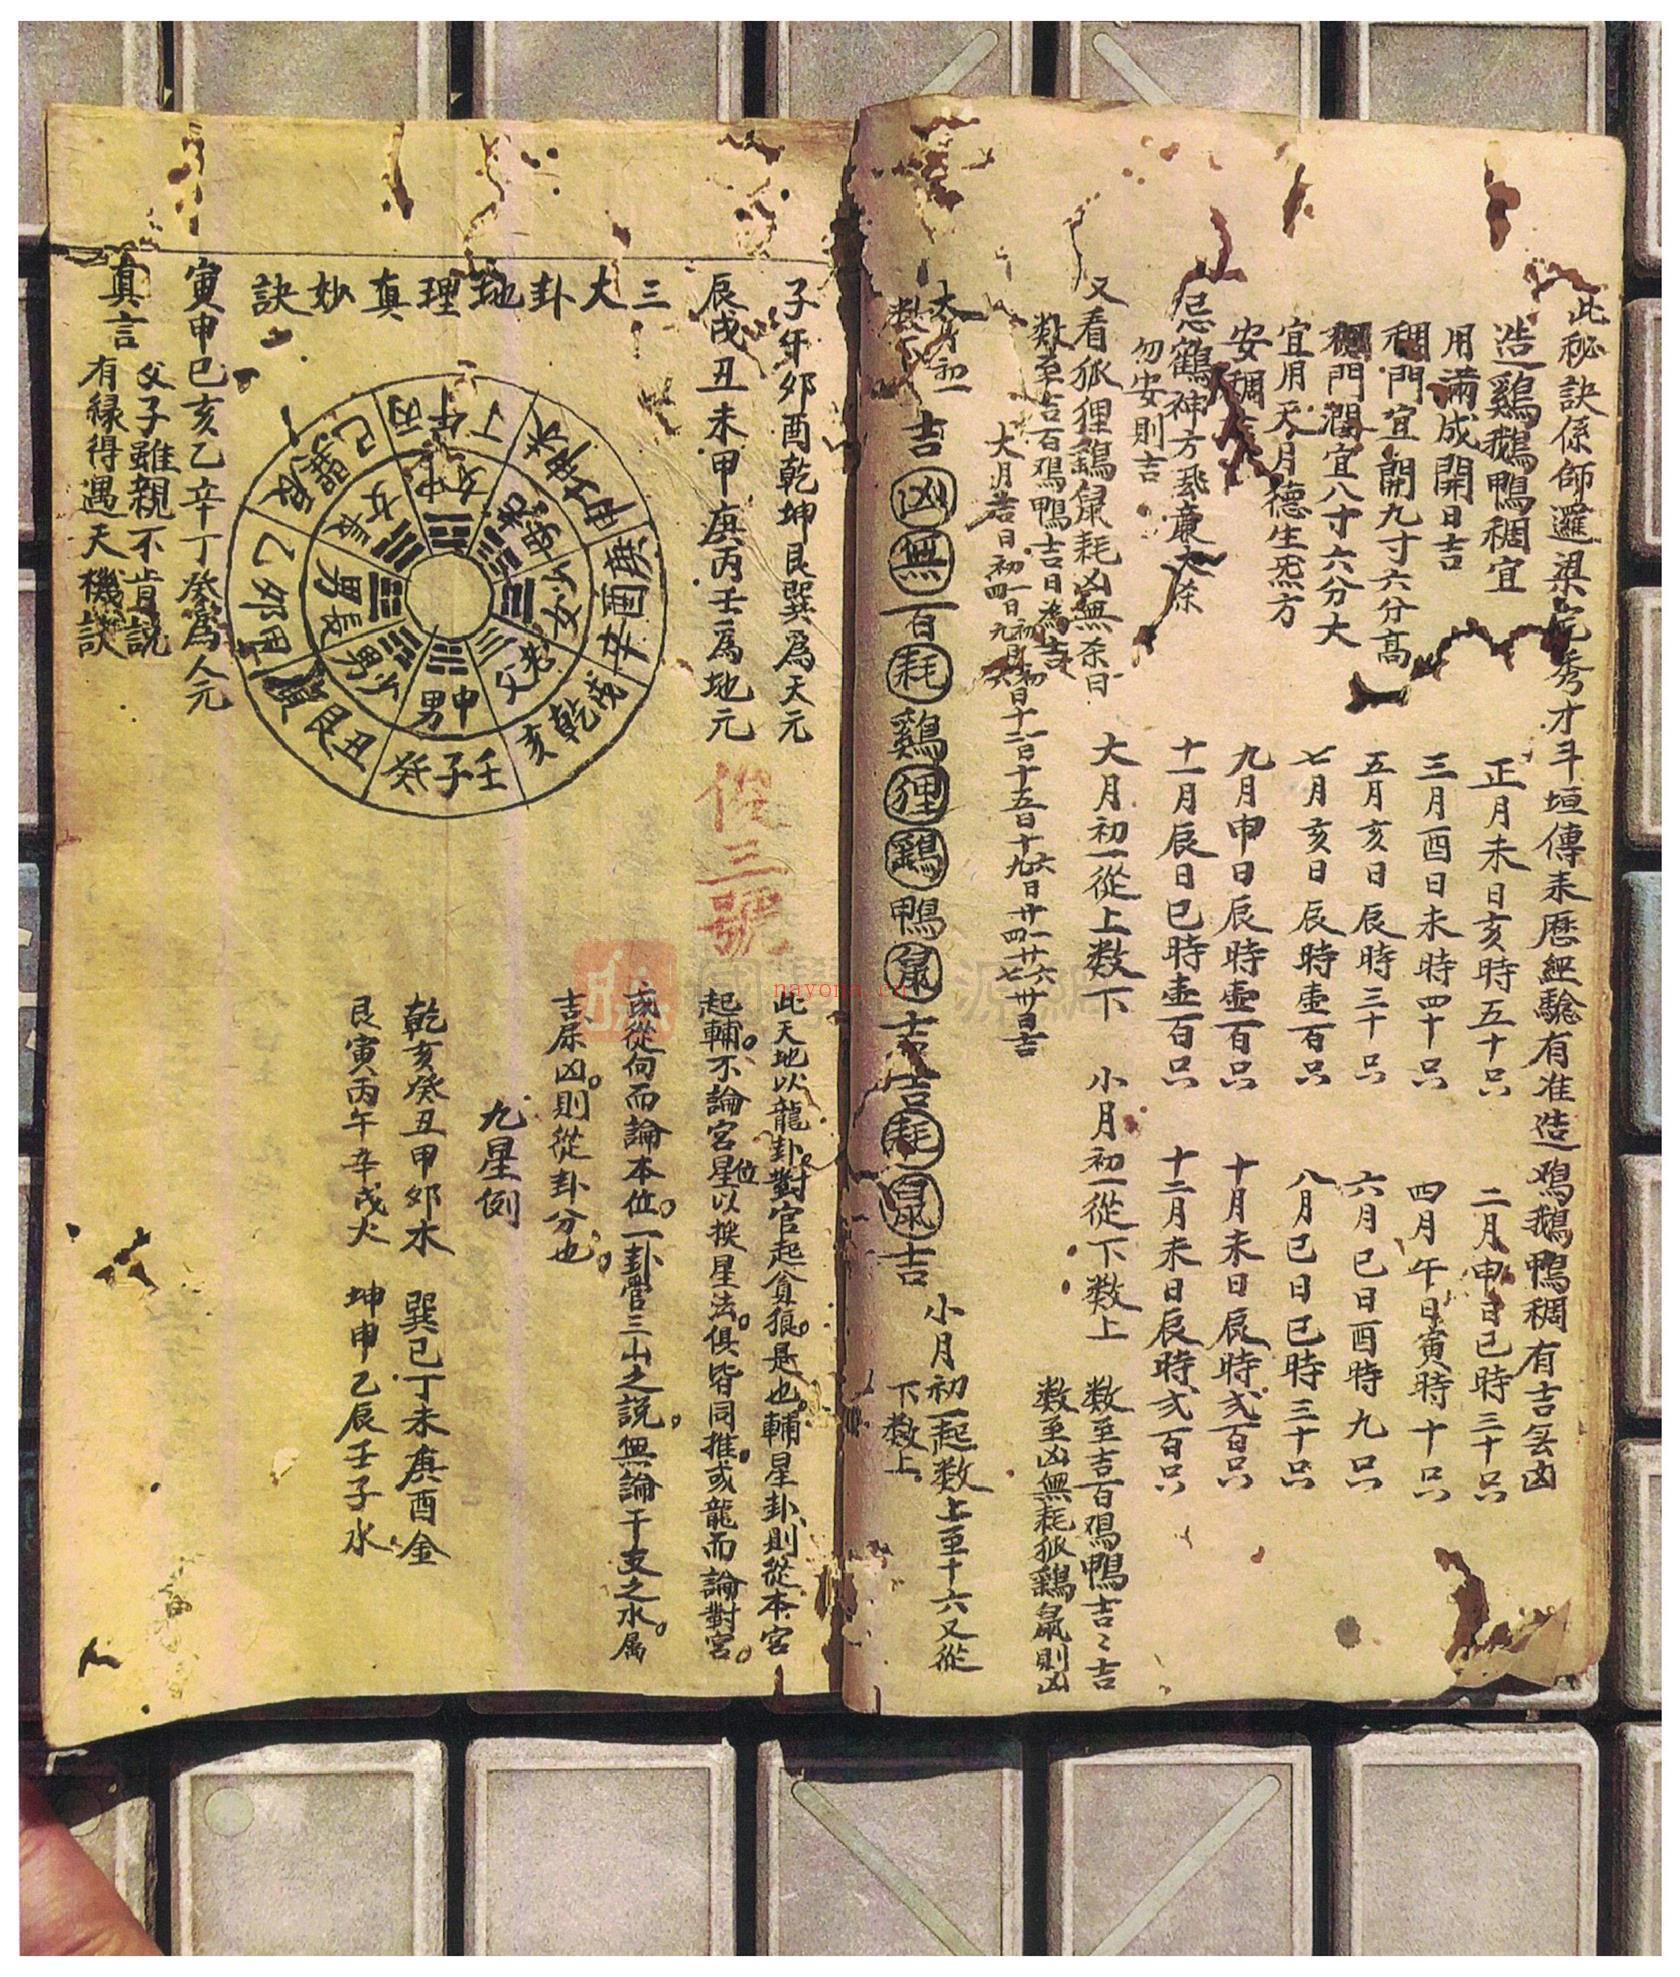 此秘訣係師邏梁完秀才斗垣傳來曆經驗有准造鳮鵝鴨稠有吉無凶
造鷄鵝鴨稠宜
用滿成開日吉
稠門宜開九寸六分高
稠門濶宜八寸六分大
宜用天月德生炁方
安稠
忌鶴神方
勿安則吉
正月未日亥時五十只
二月申日巳時三十只
三月酉日未時四十只
四月午日寅時十只
五月亥日辰時三十只
六月巳日酉時九只
七月亥日辰時壹百只
八月巳日巳時三十只
九月申日辰時壹百只
十月未日辰時弍百只
十一月辰日巳時壹百只
十二月未日辰時弍百只
又看狐狸鷄鼠耗凶無杀日
大月初一從上数下
小月初一從下数上
数至吉百鳮鴨吉〻吉
数至凶無耗狐鷄鼠則凶
数至吉百鳮鴨吉日為吉
大月吉日
大月初一
数下
吉凶無百耗鷄狸鷄鴨鼠吉吉耗鼠吉
小月初一起数上至十六又從
下数上
子午卯酉乾坤艮巽為天元
辰戌丑未甲庚丙壬為地元
三大卦地理真妙訣
寅申巳亥乙辛丁癸為人元
真言
父子雖親不肯説
有緣得遇天機訣
丁
申
庚酉辛
戌乾亥
壬子癸
丑艮寅
甲卯乙
辰巽巳
中女
老母
少女
老父
中男
少男
長男
長女
俊三號
此天地以龍卦對官起貪狼是也輔星卦則從本宮
起輔不論宮位星以挨星法俱皆同推或龍而論對宮
或從向而論本位一卦管三山之説無論干支之水属
吉属凶則從卦分也
九星例
乾亥癸丑甲卯木
巽巳丁未庚酉金
艮寅丙午辛戌火
坤申乙辰壬子水
nayona.cn